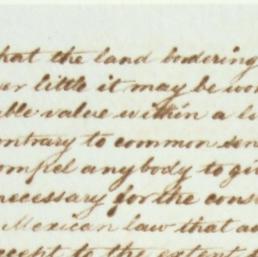 that the land bordering
ver little it may be wor
able value within a li
ontrary to common sen
ompel anybody to gi
necessary for the cons
Mexican law that ac
cept to the extent